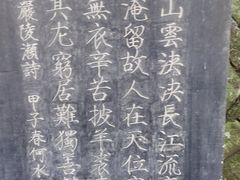 山雲泱泱長江流
淹留故人在天位
無衣辛苦披羊裘
其尤窮居難獨善
嚴陵瀨詩 甲子春何水